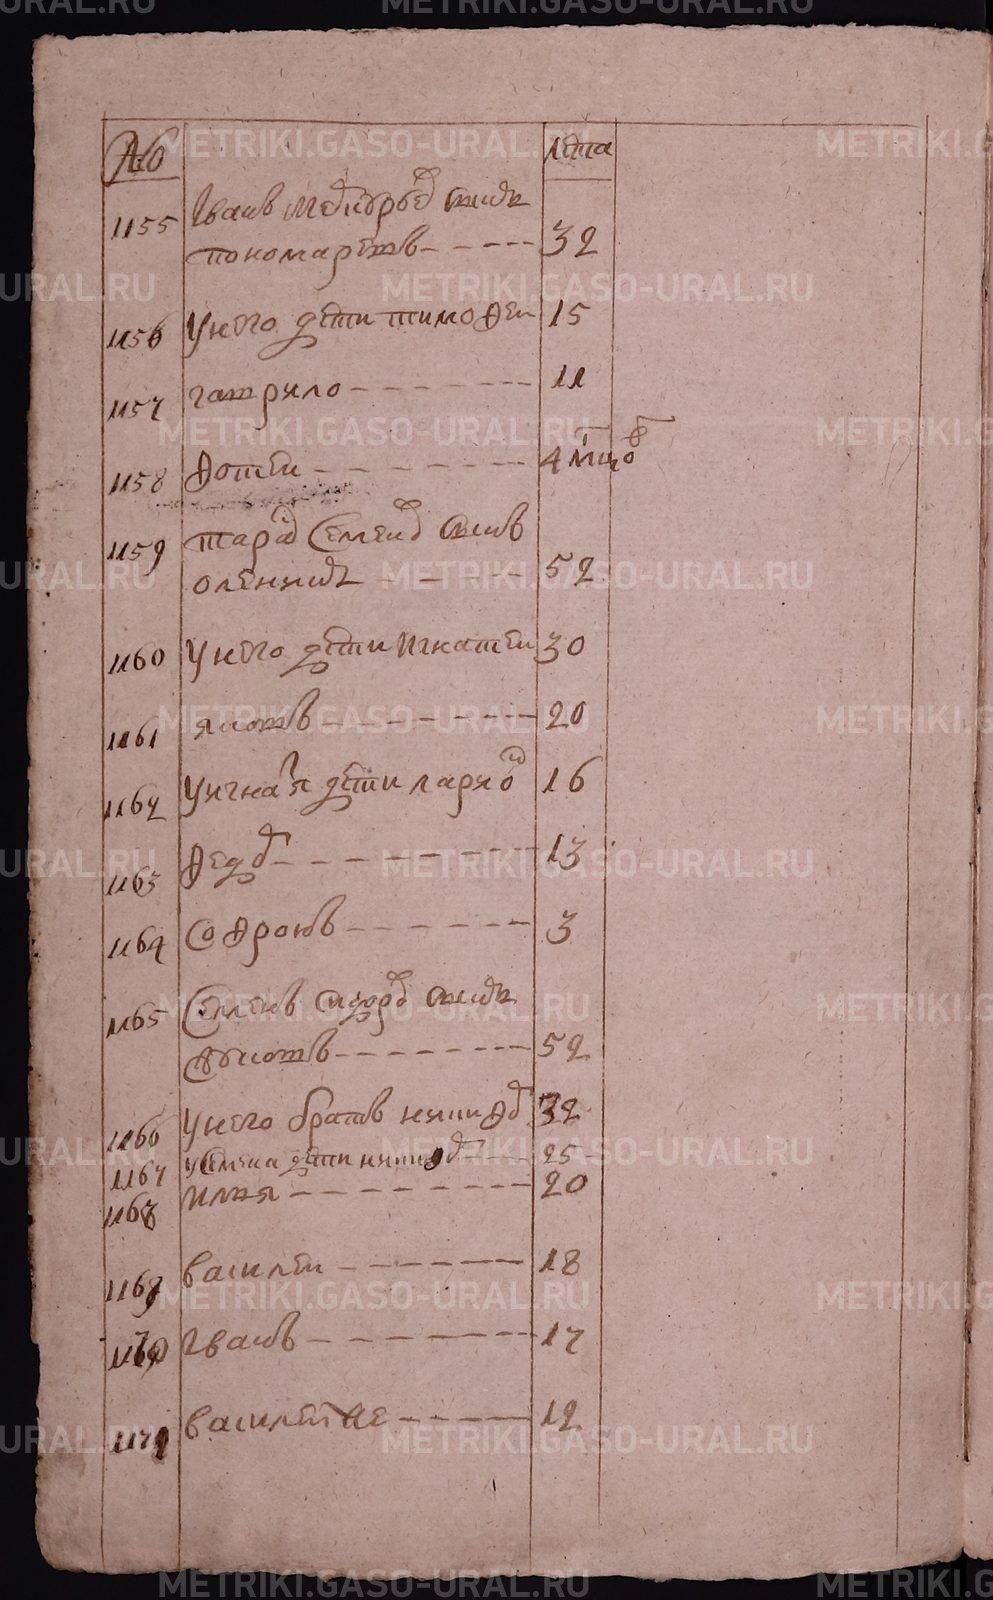 № лѣта
1155 Іванъ Меѳиѡрьевъ сынъ
пономаревъ - - - - 32
1156 У него дѣти тимоѳеи 15
1157 гаврило - - - - - - - 11
1158 ѳотеи - - - - - - - - 4 мцовъ
1159 тарасъ Семеновъ сынъ
оленинъ - - - - - - 52
1160 У него дѣти игнатеи 30
1161 яковъ - - - - - - - - 20
1162 У игнатя дѣти ларионъ 16
1163 ѳедоръ - - - - - - - - 13
1164 Соѳронъ - - - - - - - 3
1165 Семенъ сидоровъ сынъ
- - - - - - - 52
1166 У него братъ никиѳоръ 32
1167 У Семена дѣти никиѳоръ - - - 25
1168 илья - - - - - - - - 20
1169 василеи - - - - - - - 18
1170 Іванъ - - - - - - - - 17
1171 василеи же - - - - - 12
METRIKI.GASO-URAL.RU